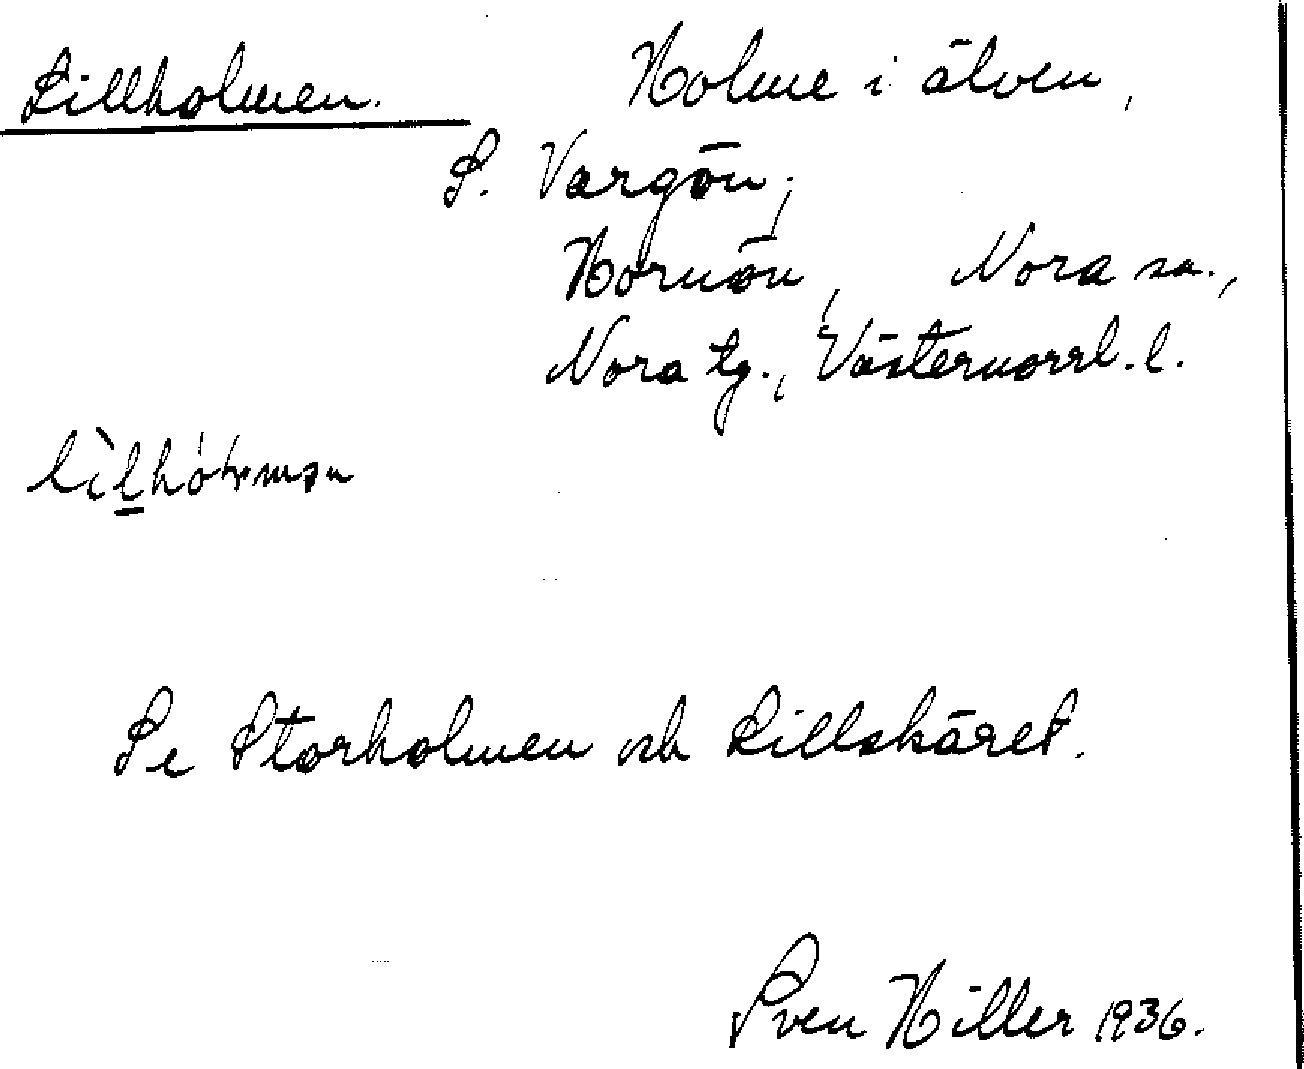 Lillholmen. Holme i älven,
S. Vargön,
Hornön, Nora sn.,
Nora tg., Västernorrl. l.
Se Storholmen och Lillskäret.
Sven Hiller 1936.